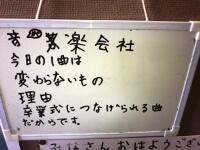 楽会社
今日の1曲は
変わらないもの
理由
卒業式につなげられる曲
だからです。
みなさんおはようござい